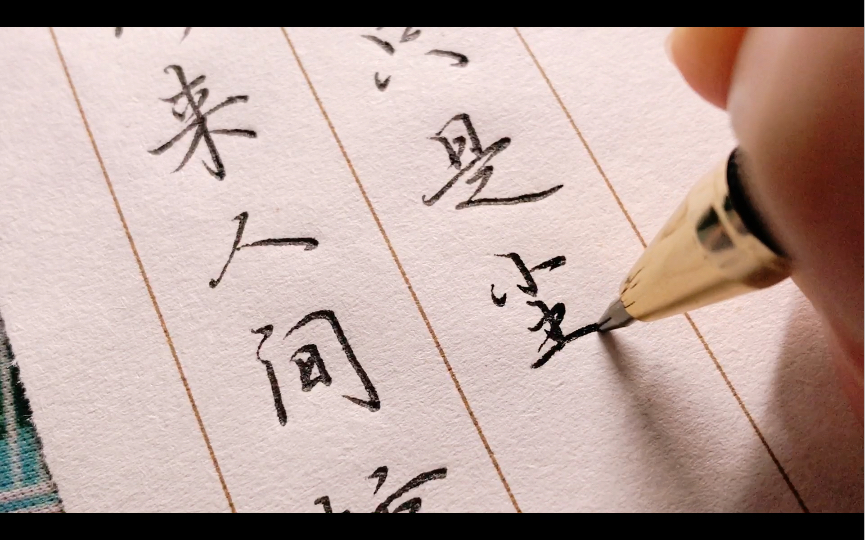 来人间
只是尘